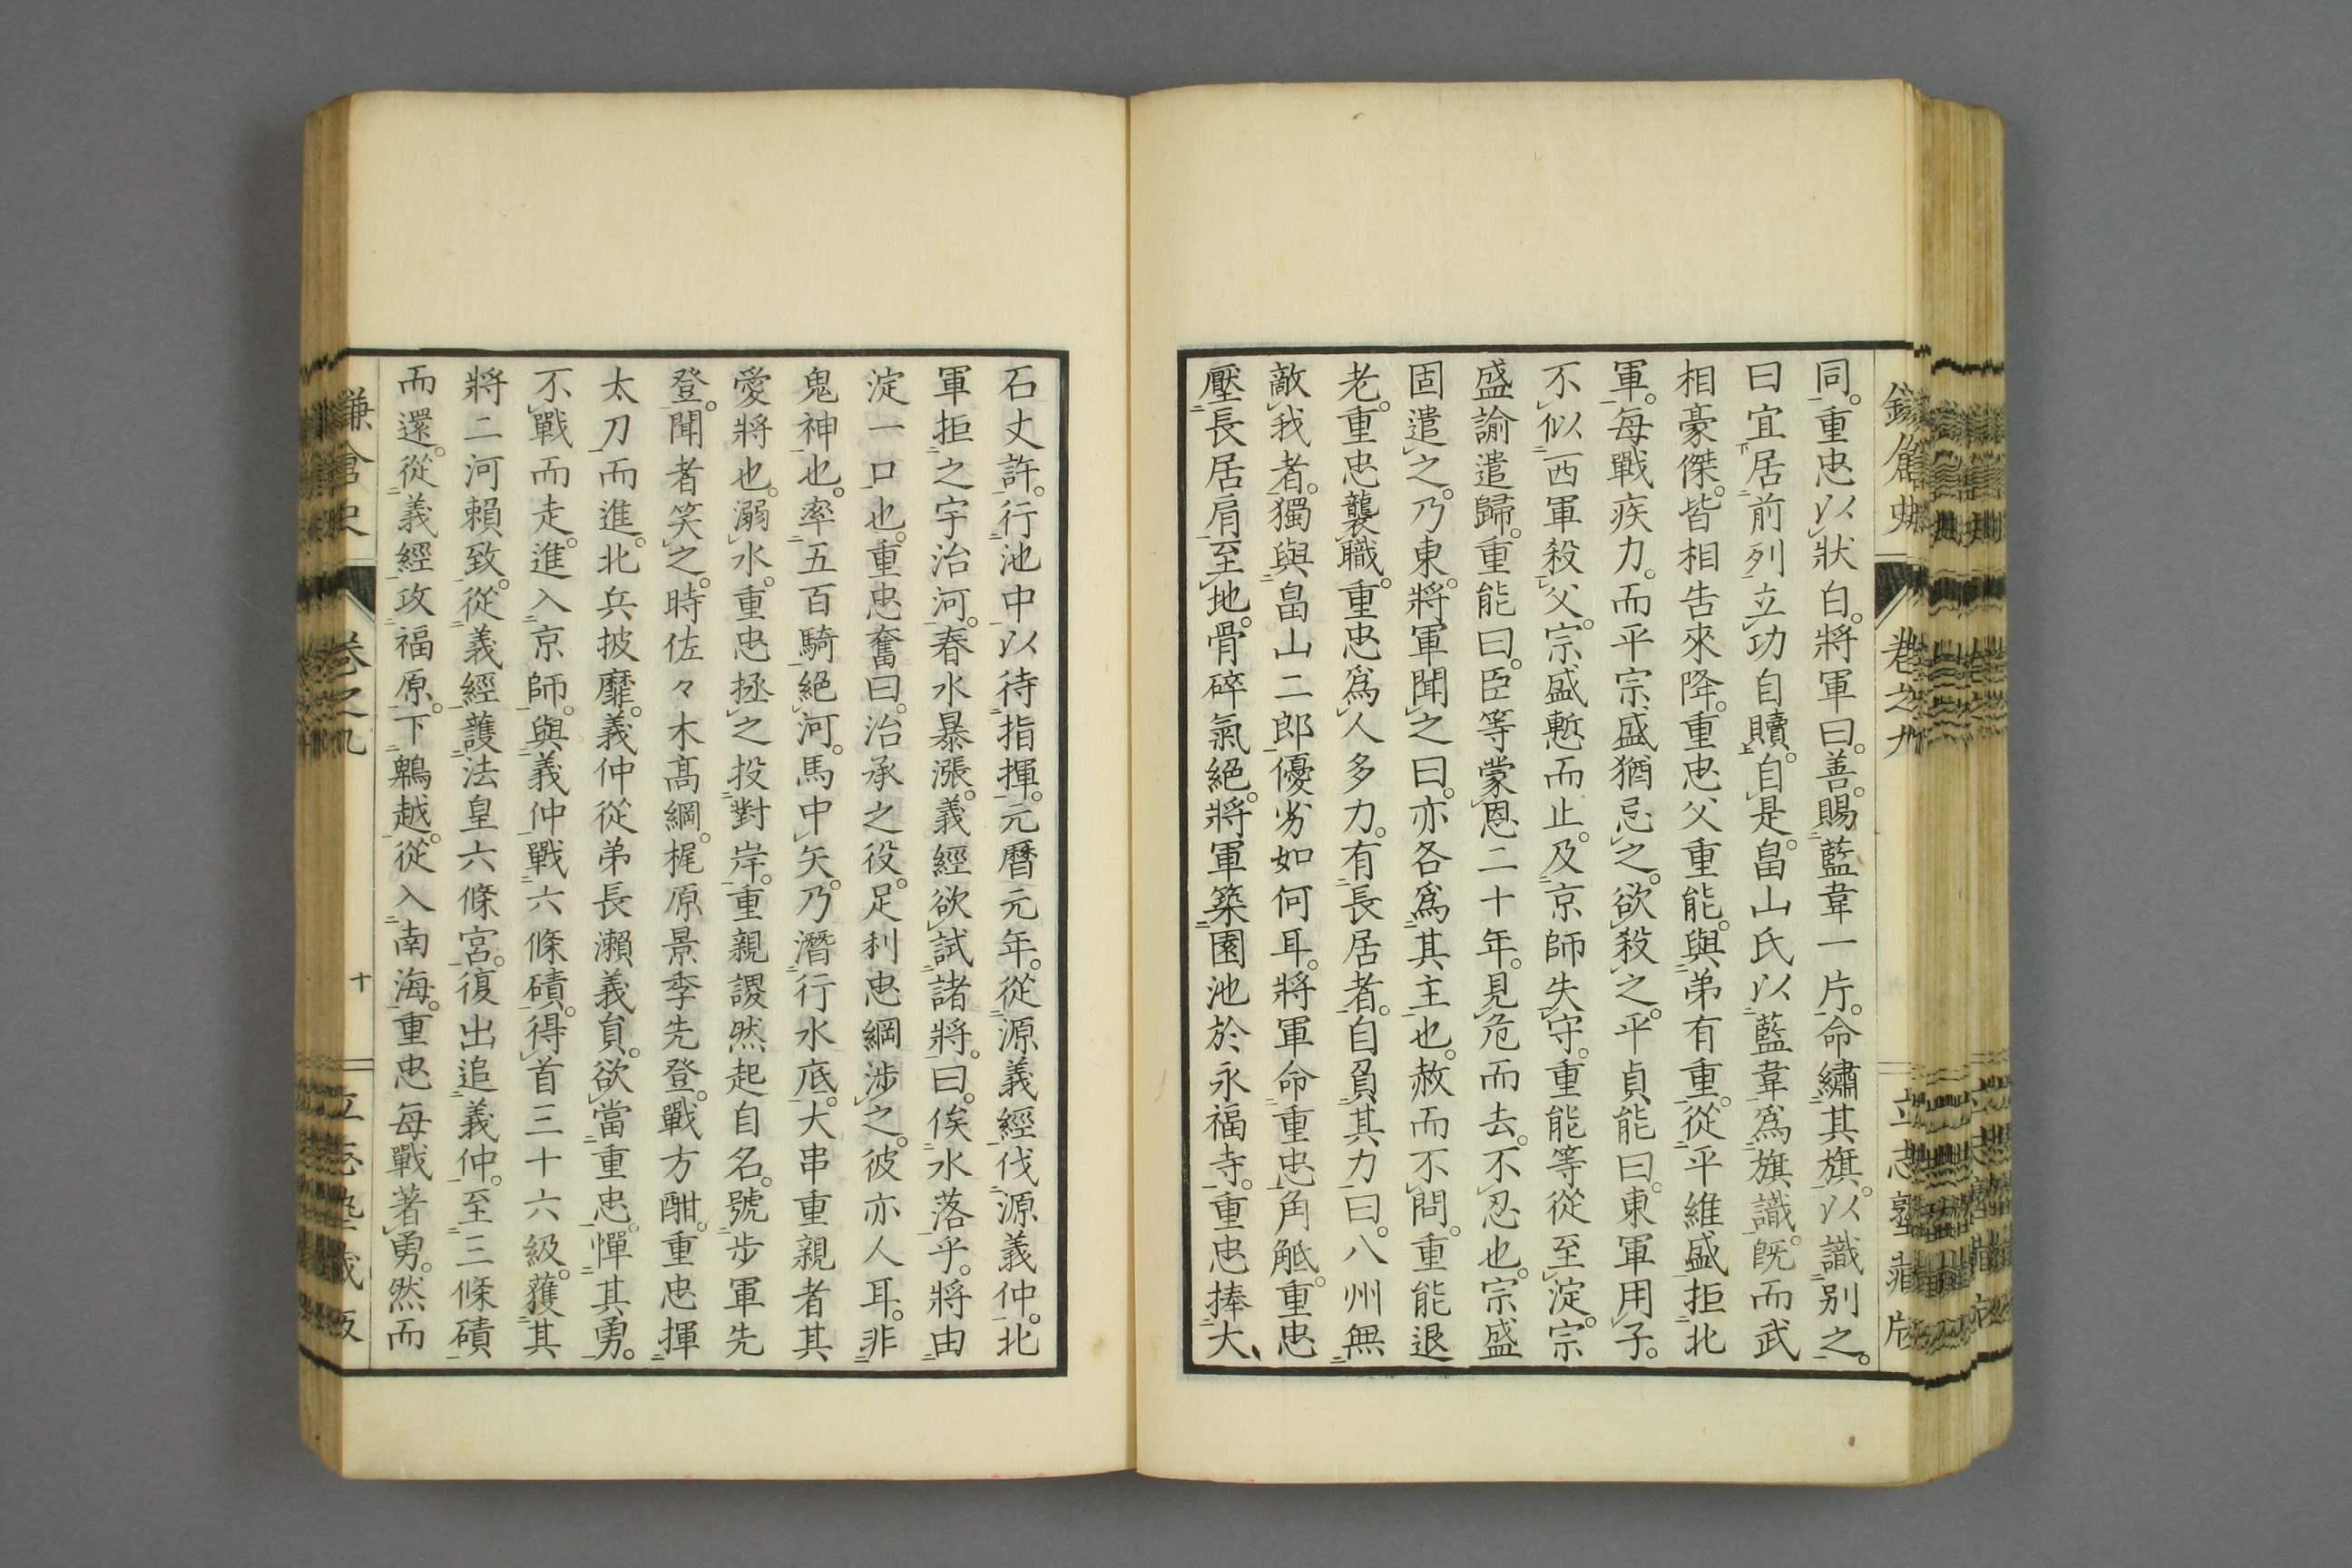 鎌倉史 卷之九 立志塾藏版
同。重忠以狀白。將軍曰。善。賜藍韋一片。命繡其旗。以識別之。
曰宜居前列立功自贖。自是。畠山氏以藍韋爲旗識。旣而武
相豪傑。皆相告來降。重忠父重能。與弟有重。從平維盛拒北
軍。每戰疾力。而平宗盛猶忌之。欲殺之。平貞能曰。東軍用子。
不似西軍殺父。宗盛慙而止。及京師失守。重能等從至淀。宗
盛諭遣歸。重能曰。臣等蒙恩二十年。見危而去。不忍也。宗盛
固遣之。乃東。將軍聞之曰。亦各爲其主也。赦而不問。重能退
老。重忠襲職。重忠爲人多力。有長居者。自負其力曰。八州無
敵我者。獨與畠山二郎優劣如何耳。將軍命重忠角觝。重忠
壓長居肩至地。骨碎氣絕。將軍築園池於永福寺。重忠捧大、
石丈許。行池中以待指揮。元曆元年。從源義經伐源義仲。北
軍拒之宇治河。春水暴漲。義經欲試諸將。曰。俟水落乎。將由
淀一口也。重忠奮曰。治承之役。足利忠綱涉之。彼亦人耳。非
鬼神也。率五百騎絕河。馬中矢。乃潛行水底。大串重親者其
愛將也。溺水。重忠拯之投對岸。重親謖然起自名。號步軍先
登。聞者笑之。時佐々木高綱。梶原景季先登。戰方酣。重忠揮
太刀而進。北兵披靡。義仲從弟長瀨義員。欲當重忠。憚其勇。
不戰而走。進入京師。與義仲戰六條磧。得首三十六級。獲其
將二河賴致。從義經護法皇六條宮。復出追義仲。至三條磧
而還。從義經攻福原。下鵯越。從入南海。重忠每戰著勇。然而
鎌倉史 卷之九 十 立志塾藏版